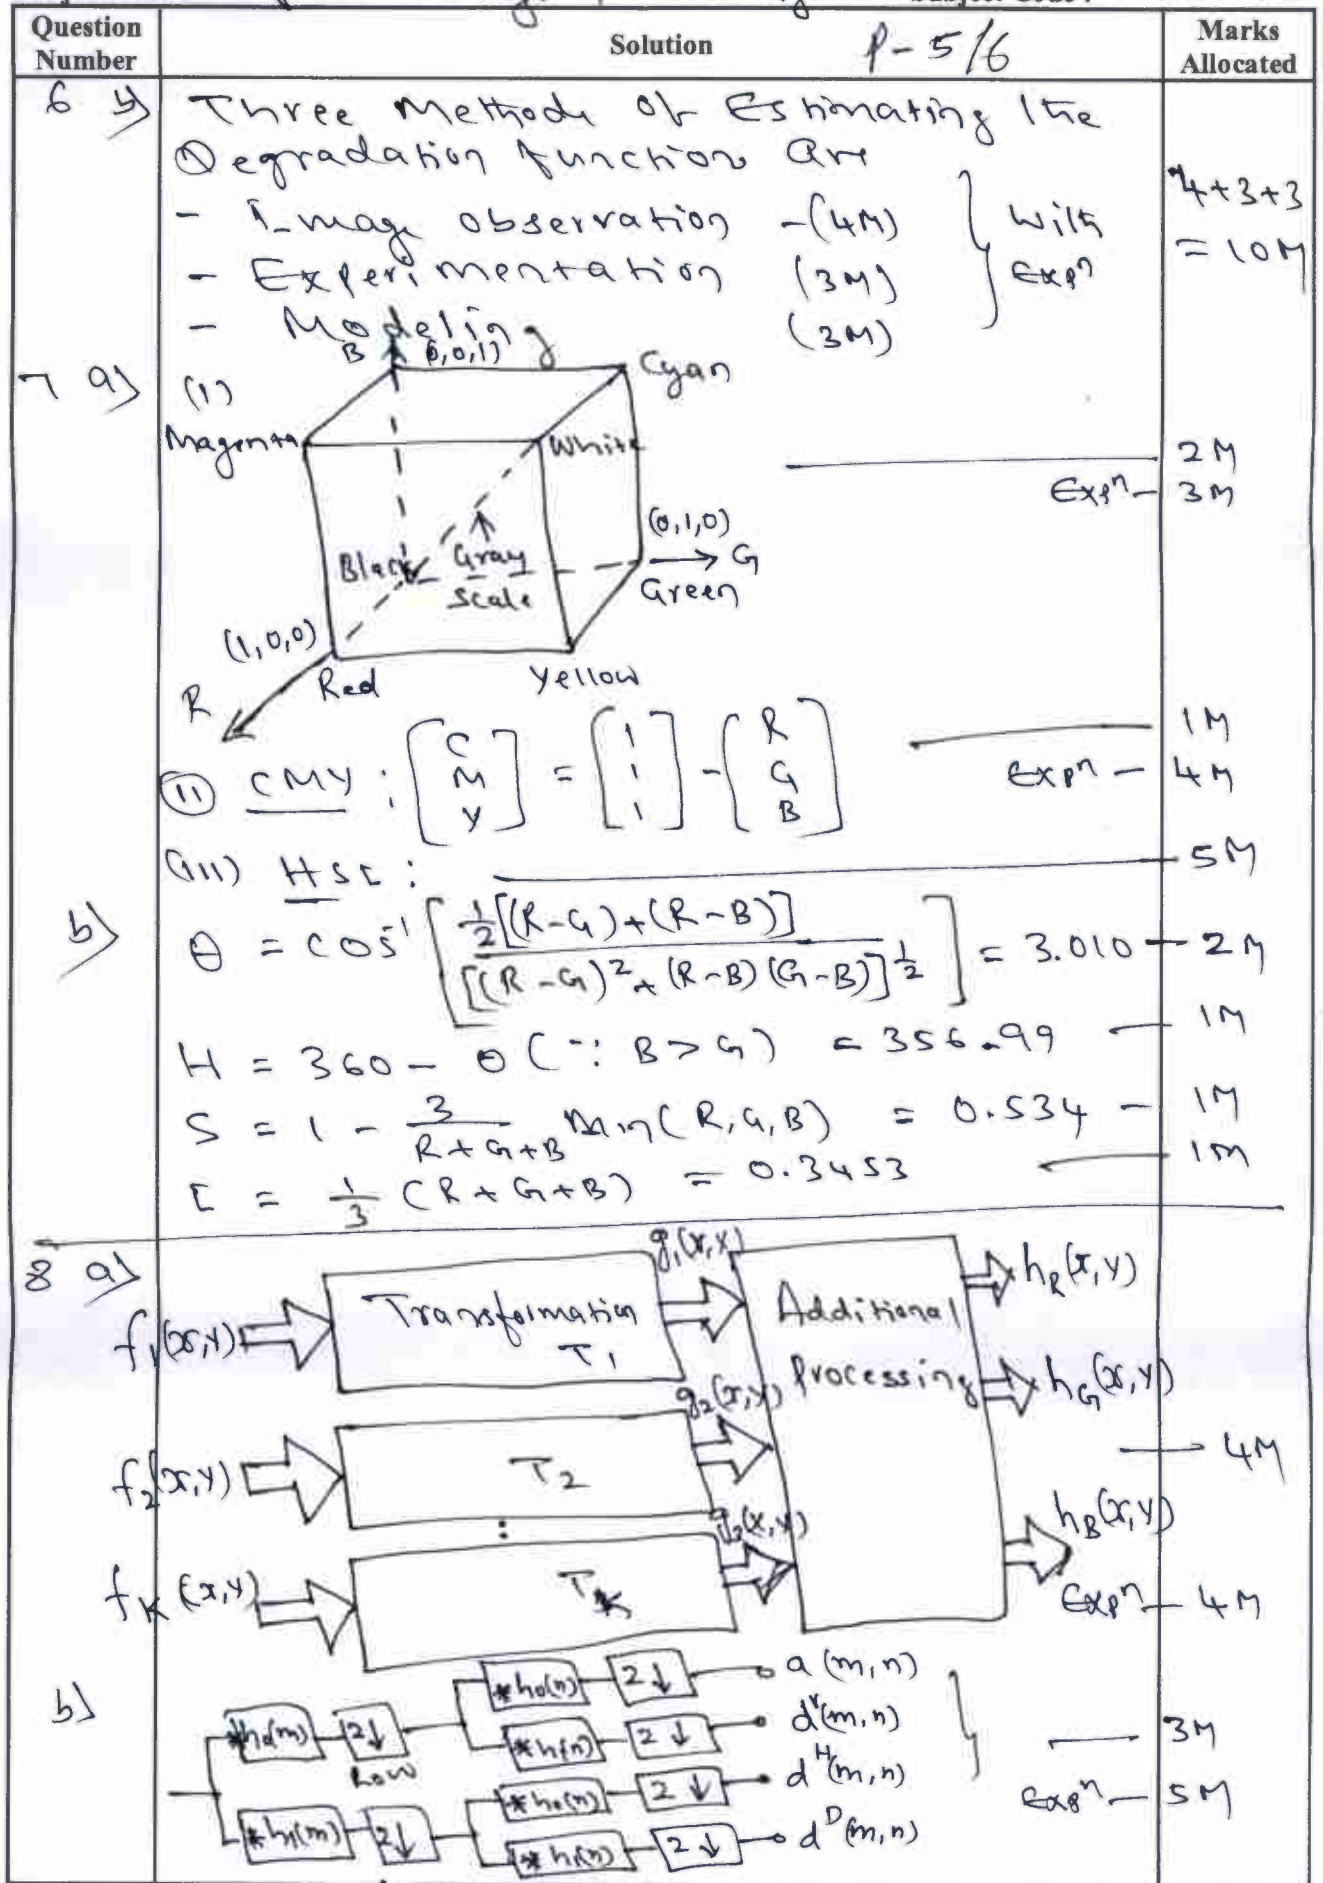 Question Number
Solution
P-5/6
Marks Allocated
6 b)
Three Methods of Estimating the
Degradation function are
- Image observation -(4M)
- Experimentation (3M)
- Modeling (3M)
with Expⁿ
4+3+3
= 10M
7 a)
(1)
B (0,0,1)
Cyan
Magenta
White
2M
Expⁿ - 3M
(0,1,0)
Black
Gray Scale
G
Green
(1,0,0)
R
Red
Yellow
(ii) CMY : [C M Y] = [1 1 1] - [R G B]
1M
Expⁿ - 4M
(iii) HSI :
5M
b)
θ = cos⁻¹ [ ½[(R-G)+(R-B)] / [(R-G)²+(R-B)(G-B)]^½ ] = 3.010 - 2M
H = 360 - θ (∵ B>G) = 356.99 - 1M
S = 1 - 3/(R+G+B) Min(R,G,B) = 0.534 - 1M
I = 1/3 (R+G+B) = 0.3453 - 1M
8 a)
g₁(x,y)
hR(x,y)
f₁(x,y)
Transformation T₁
Additional Processing
hG(x,y)
g₂(x,y)
4M
f₂(x,y)
T₂
hB(x,y)
g₃(x,y)
:
fK(x,y)
TK
Expⁿ - 4M
b)
*h₀(n) 2↓ a(m,n)
*h₀(m) 2↓
Row
*h₁(n) 2↓ dᵛ(m,n)
3M
*h₀(n) 2↓ dᴴ(m,n)
Expⁿ - 5M
*h₁(m) 2↓
*h₁(n) 2↓ dᴰ(m,n)